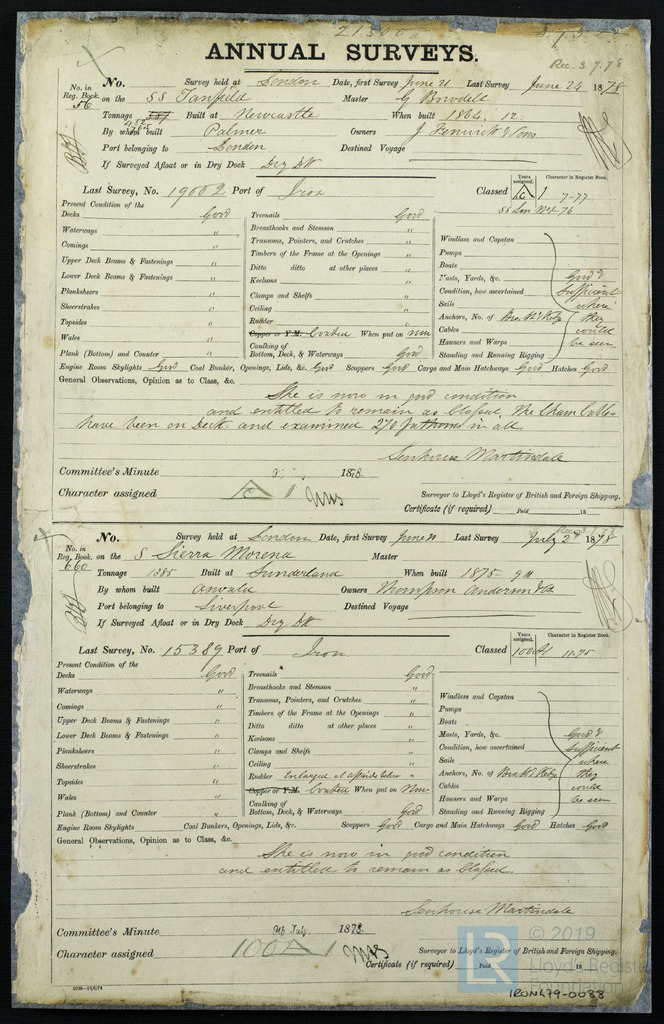 21300
Rec. 3.7.78
ANNUAL SURVEYS.
No. in Reg. Book. 56
No. Survey held at London Date, first Survey June 21 Last Survey June 24 1878
on the SS Tanfield Master G Bowdell
Tonnage Built at Newcastle When built 1864. 12.
By whom built Palmer Owners J Fenwick & Sons
Port belonging to London Destined Voyage
If Surveyed Afloat or in Dry Dock Dry Dk
Last Survey, No. 19002 Port of Iron Classed
Years assigned. Character in Register Book.
A 1 7-77
SS Lon 76
Present Condition of the
Decks Good
Waterways "
Comings "
Upper Deck Beams & Fastenings "
Lower Deck Beams & Fastenings "
Planksheers "
Sheerstrakes "
Topsides "
Wales "
Plank (Bottom) and Counter "
Treenails Good
Breasthooks and Stemson "
Transoms, Pointers, and Crutches "
Timbers of the Frame at the Openings "
Ditto ditto at other places "
Keelsons "
Clamps and Shelfs "
Ceiling "
Rudder "
Copper or Y.M. Coated When put on now
Caulking of Bottom, Deck, & Waterways Good
Windlass and Capstan
Pumps
Boats
Masts, Yards, &c.
Condition, how ascertained
Sails
Anchors, No. of
Cables
Hawsers and Warps
Standing and Running Rigging
Good & sufficient where they could be seen
Engine Room Skylights Good Coal Bunker, Openings, Lids, &c. Good Scuppers Good Cargo and Main Hatchways Good Hatches Good
General Observations, Opinion as to Class, &c.
She is now in good condition
and entitled to remain as Classed. The Chain Cables
have been on Deck and examined 270 fathoms in all
Senhouse Martindale
Committee's Minute 1878.
Character assigned A 1
Surveyor to Lloyd's Register of British and Foreign Shipping.
Certificate (if required) Paid 18
No. in Reg. Book. 660
No. Survey held at London Date, first Survey June Last Survey July 2nd 1878
on the S Sierra Morena Master
Tonnage 1385 Built at Sunderland When built 1875 - 9
By whom built Owners Thompson Anderson & Co
Port belonging to Liverpool Destined Voyage
If Surveyed Afloat or in Dry Dock Dry Dk
Last Survey, No. 15389 Port of Iron Classed
Years assigned. Character in Register Book.
100A1 11.75
Present Condition of the
Decks Good
Waterways "
Comings "
Upper Deck Beams & Fastenings "
Lower Deck Beams & Fastenings "
Planksheers "
Sheerstrakes "
Topsides "
Wales "
Plank (Bottom) and Counter "
Treenails Good
Breasthooks and Stemson "
Transoms, Pointers, and Crutches "
Timbers of the Frame at the Openings "
Ditto ditto at other places "
Keelsons "
Clamps and Shelfs "
Ceiling "
Rudder Enlarged at
Copper or Y.M. Coated When put on Now
Caulking of Bottom, Deck, & Waterways Good
Windlass and Capstan
Pumps
Boats
Masts, Yards, &c.
Condition, how ascertained
Sails
Anchors, No. of
Cables
Hawsers and Warps
Standing and Running Rigging
Good & sufficient where they could be seen
Engine Room Skylights Coal Bunkers, Openings, Lids, &c. Scuppers Good Cargo and Main Hatchways Good Hatches Good
General Observations, Opinion as to Class, &c.
She is now in good condition
and entitled to remain as Classed.
Senhouse Martindale
Committee's Minute 9th July 1878.
Character assigned 100A1
Surveyor to Lloyd's Register of British and Foreign Shipping.
Certificate (if required) Paid 18
LR © 2019
Lloyd's Register
Foundation
IRON479-0088